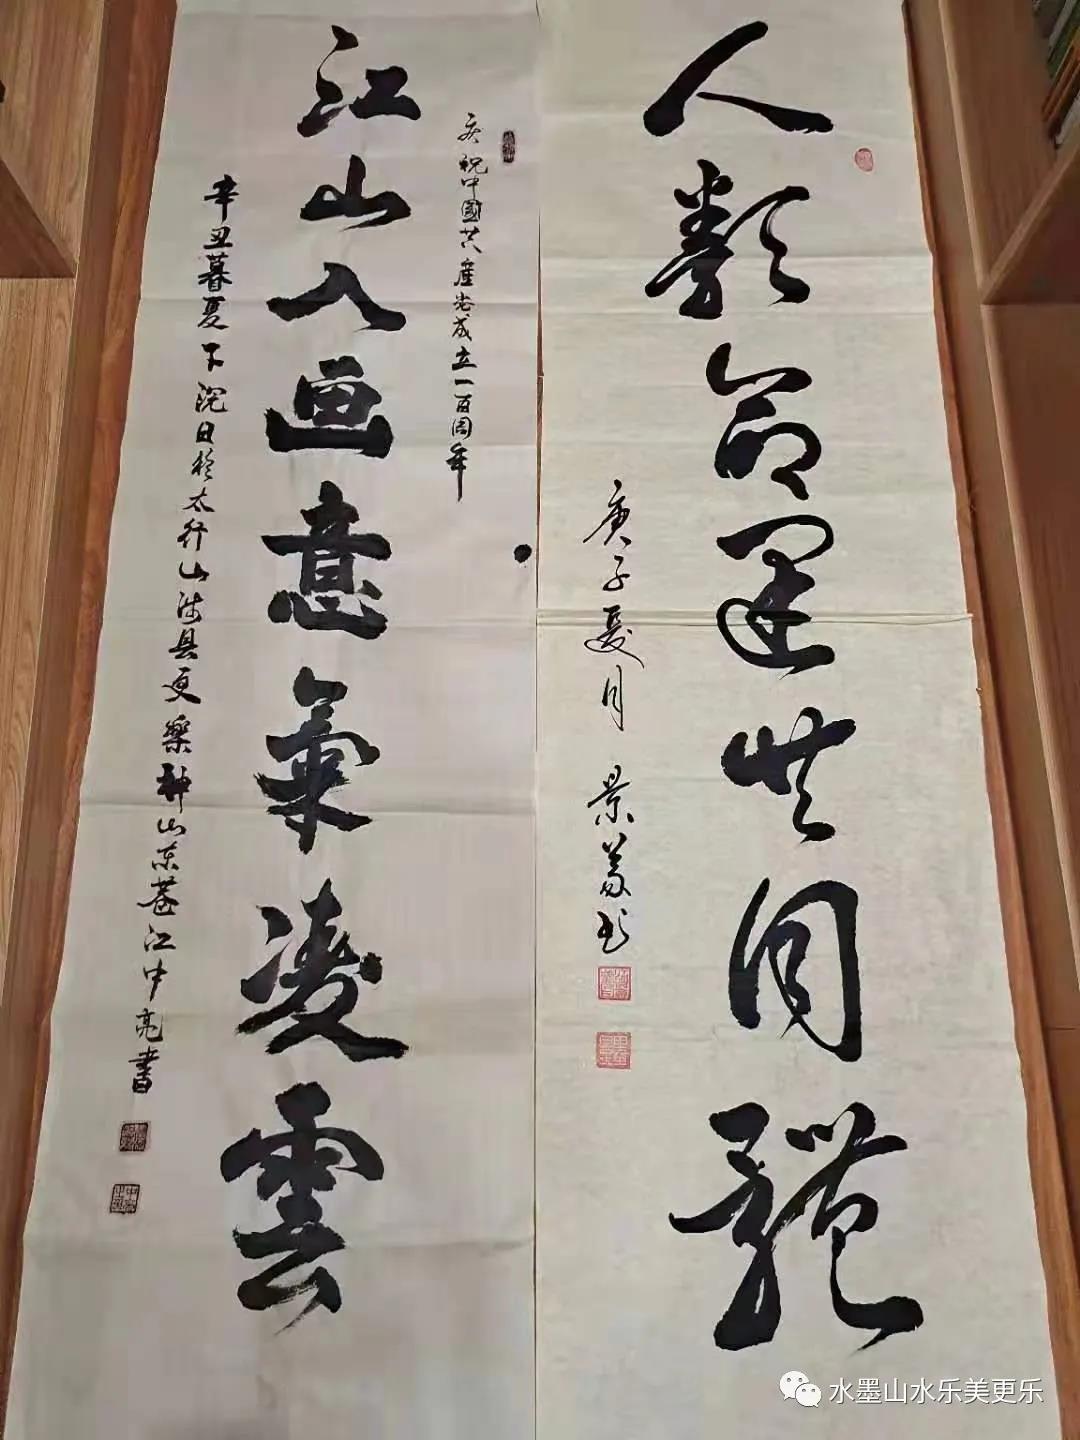 人類命運共同體
庚子夏月 景義书
庆祝中國共産党成立一百周年
江山入画意氣凌雲
辛丑暮夏下浣日於太行山涉县更樂神山东菴江中亮書
水墨山水乐美更乐